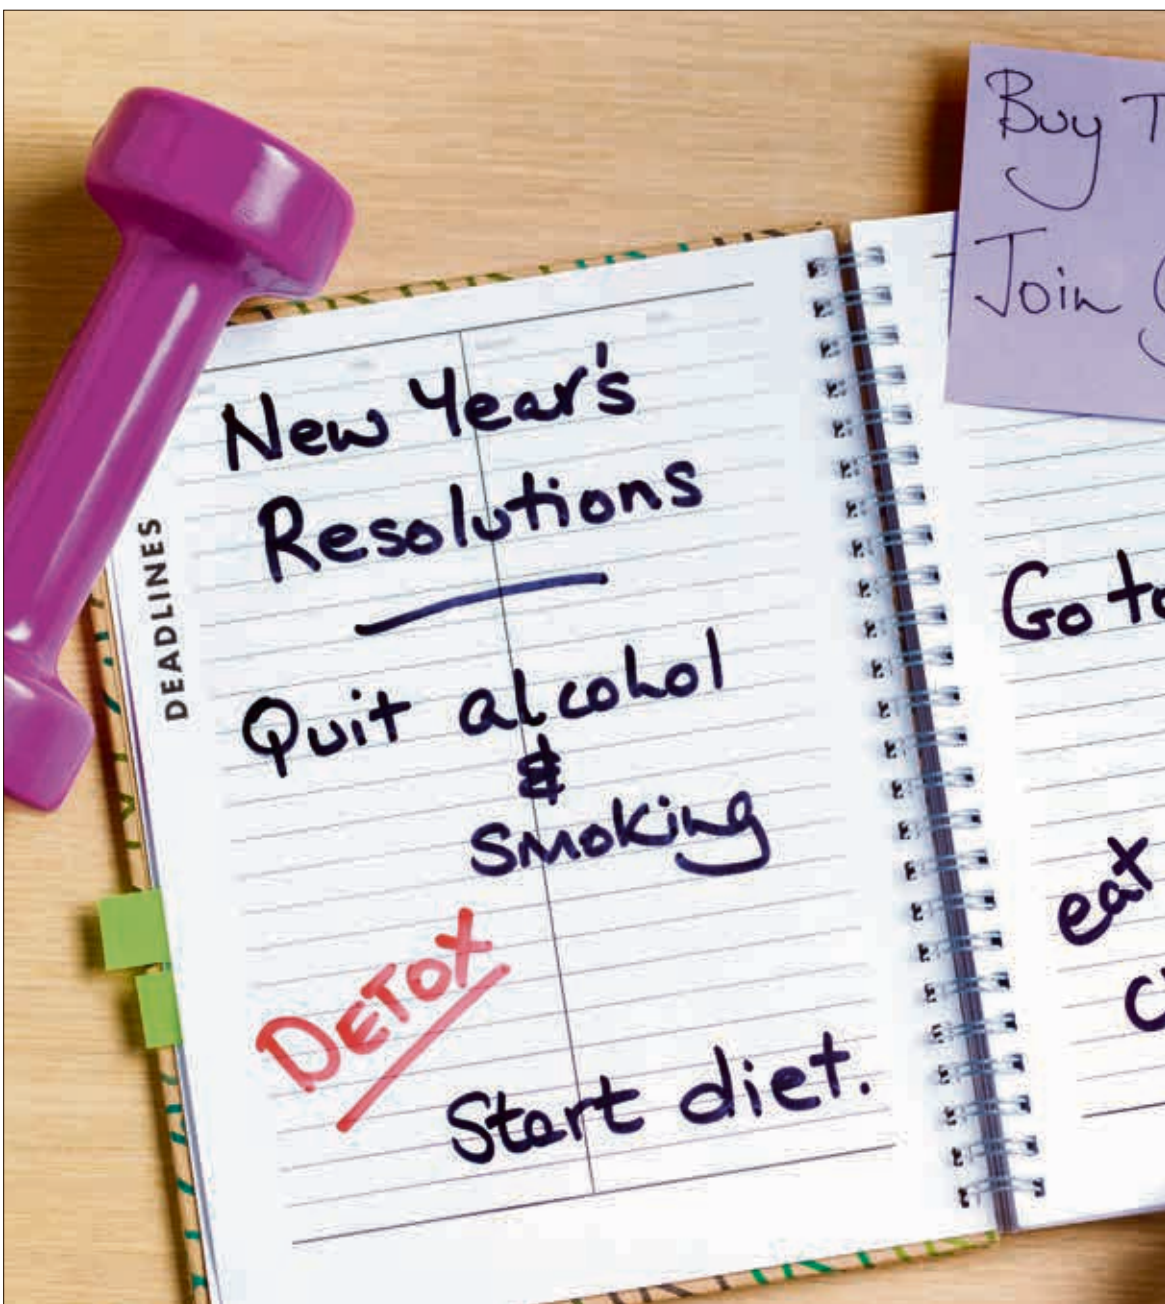 DEADLINES
New Year's
Resolutions
Quit alcohol
&
smoking
DETOX
Start diet.
Buy
Join
Go to
eat